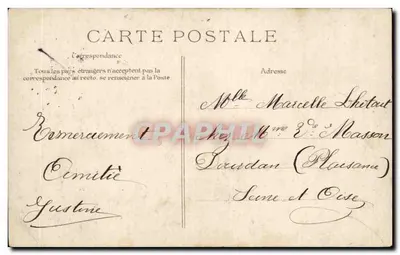 CARTE POSTALE
Correspondance
Tous les pays étrangers n'acceptent pas la
correspondance au recto, se renseigner à la Poste
Adresse
Mlle Marcelle
chez Mme Vve Masson
Dourdan (Plaisance)
Seine et Oise
Remerciement
Amitié
Justine
CPAPHIL